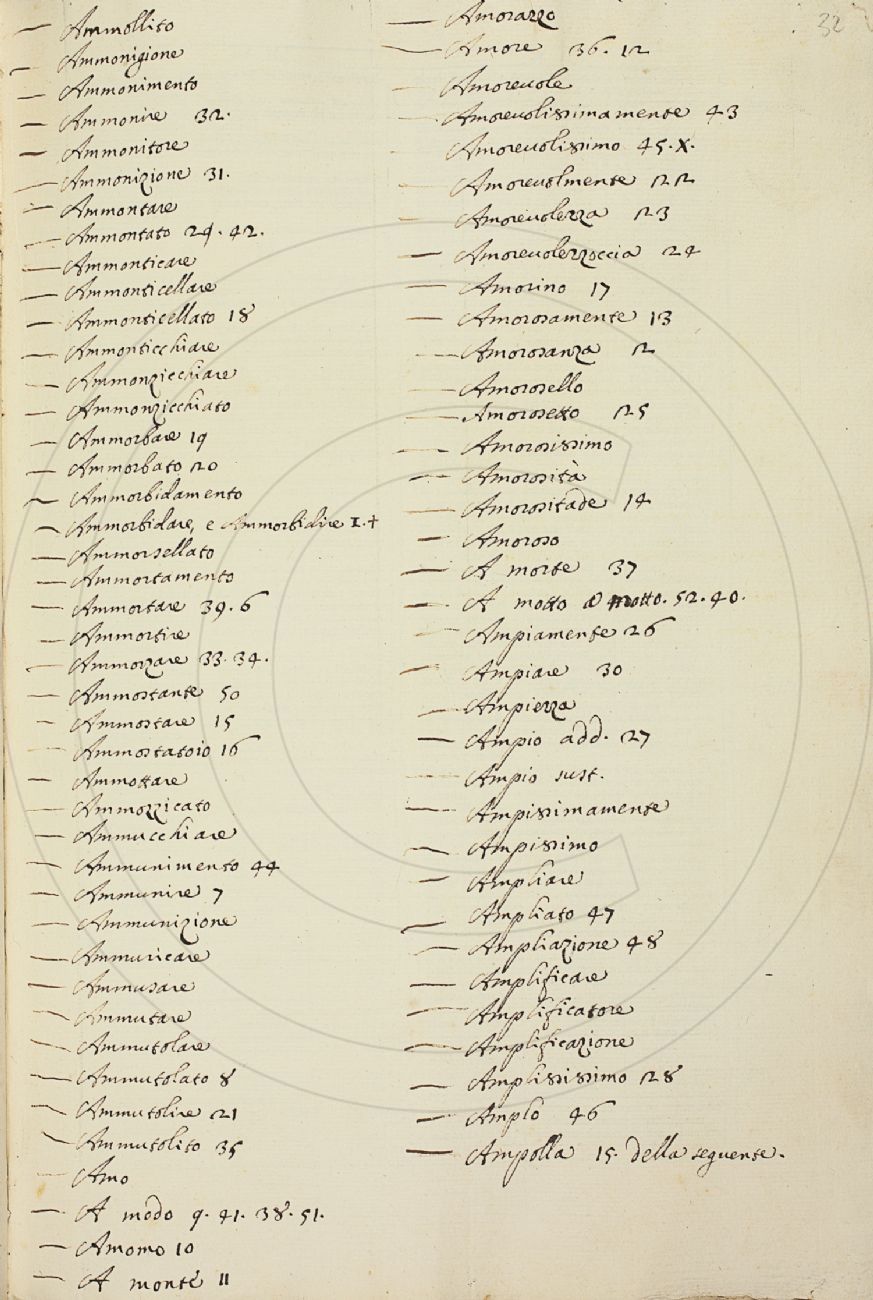 32
— Ammollito
— Ammonigione
— Ammonimento
— Ammonire 32.
— Ammonitore
— Ammonizione 31.
— Ammontare
— Ammontato 29. 42.
— Ammonticare
— Ammonticellare
— Ammonticellato 18
— Ammonticchiare
— Ammonzicchiare
— Ammonzicchiato
— Ammorbare 19
— Ammorbato 20
— Ammorbidamento
— Ammorbidare, e Ammorbidire 1.+
— Ammorsellato
— Ammortamento
— Ammortare 39. 6
— Ammortire
— Ammorzare 33. 34.
— Ammostante 50
— Ammostare 15
— Ammostatoio 16
— Ammottare
— Ammozzicato
— Ammucchiare
— Ammunimento 44
— Ammunire 7
— Ammunizione
— Ammuricare
— Ammusare
— Ammutare
— Ammutolare
— Ammutolato 8
— Ammutolire 21
— Ammutolito 35
— Amo
— A modo 9. 41. 38. 51.
— Amomo 10
— A monte 11
— Amorazzo
— Amore 36. 12
— Amorevole
— Amorevolissimamente 43
— Amorevolissimo 45. X.
— Amorevolmente 22
— Amorevolezza 23
— Amorevolezzoccia 24
— Amorino 17
— Amorosamente 13
— Amorosanza 2
— Amorosello
— Amorosetto 25
— Amorosissimo
— Amorosità
— Amorositade 14
— Amoroso
— A morte 37
— A motto a motto. 52. 40.
— Ampiamente 26
— Ampiare 30
— Ampiezza
— Ampio add. 27
— Ampio sust.
— Ampissimamente
— Ampissimo
— Ampliare
— Ampliato 47
— Ampliazione 48
— Amplificare
— Amplificatore
— Amplificazione
— Amplissimo 28
— Amplo 46
— Ampolla 15. della seguente.